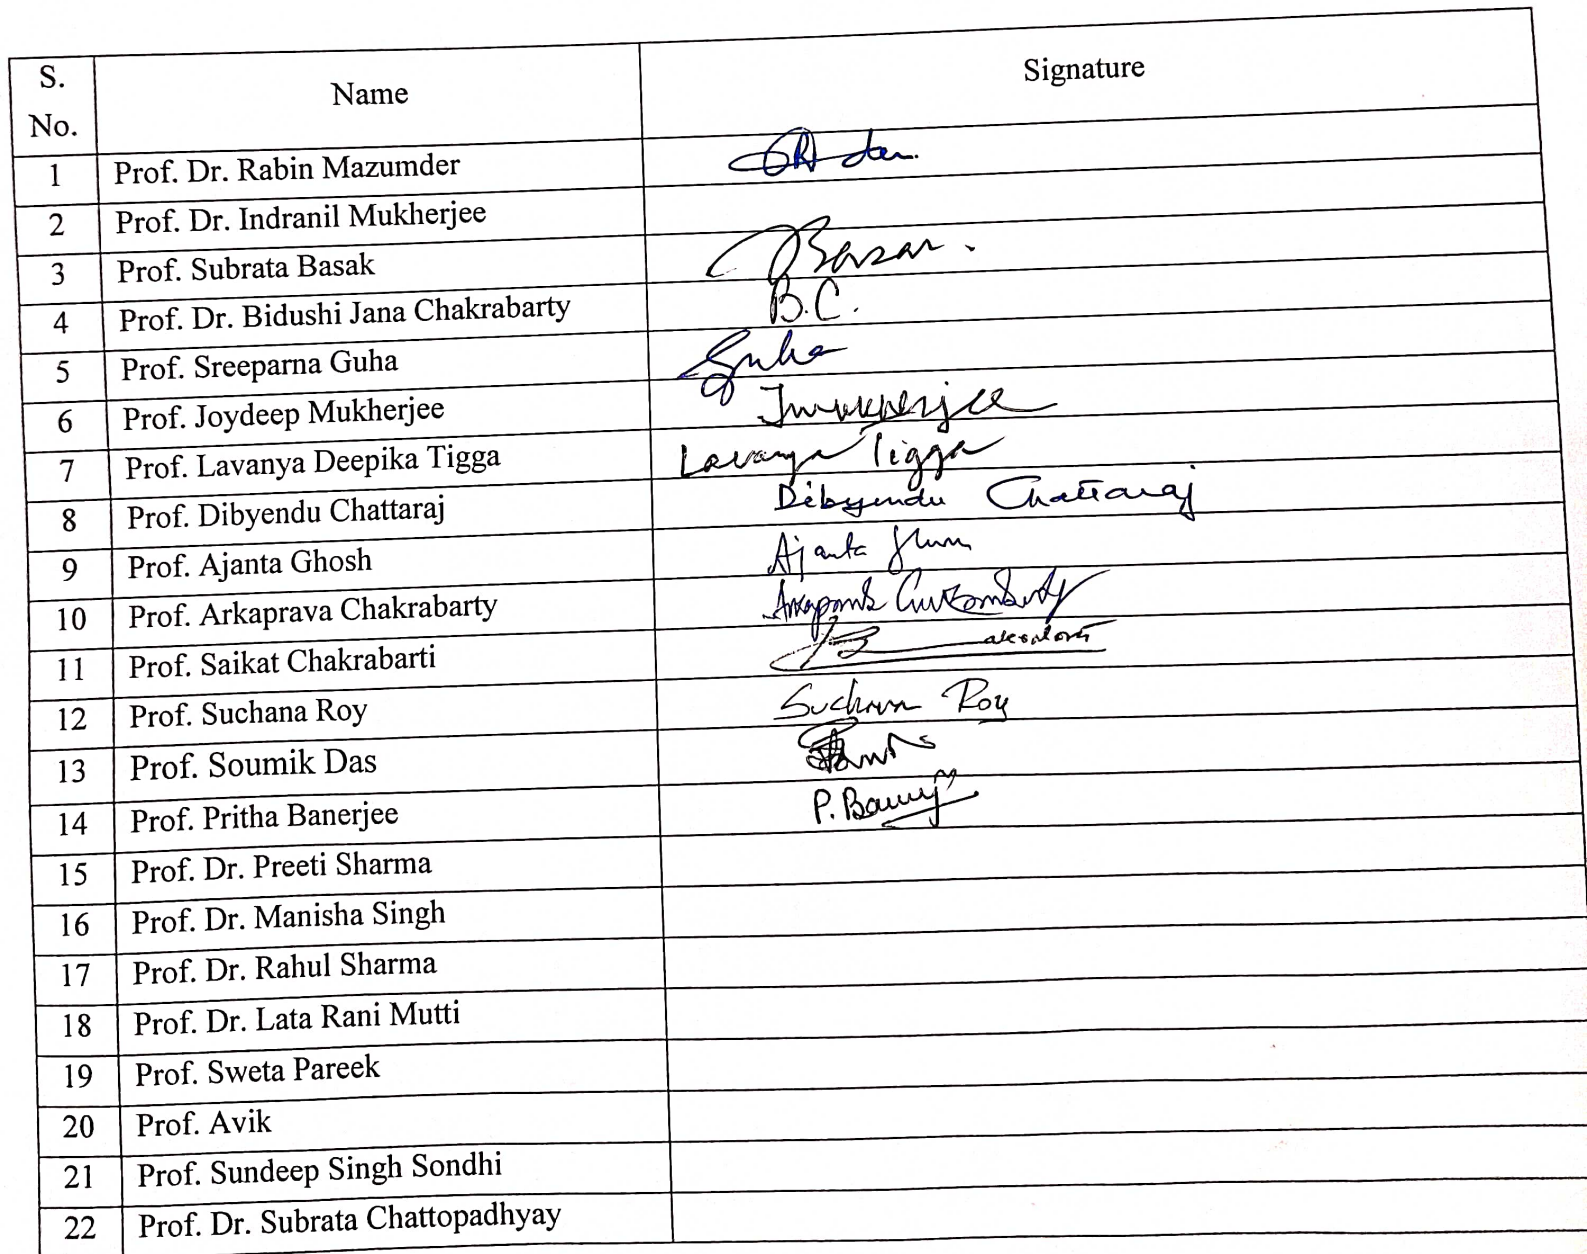 S. No. Name Signature
1 Prof. Dr. Rabin Mazumder
2 Prof. Dr. Indranil Mukherjee
3 Prof. Subrata Basak
4 Prof. Dr. Bidushi Jana Chakrabarty B.C.
5 Prof. Sreeparna Guha Guha
6 Prof. Joydeep Mukherjee Jmukherjee
7 Prof. Lavanya Deepika Tigga Lavanya Tigga
8 Prof. Dibyendu Chattaraj Dibyendu Chattaraj
9 Prof. Ajanta Ghosh Ajanta
10 Prof. Arkaprava Chakrabarty
11 Prof. Saikat Chakrabarti
12 Prof. Suchana Roy Suchana Roy
13 Prof. Soumik Das
14 Prof. Pritha Banerjee P. Banerjee
15 Prof. Dr. Preeti Sharma
16 Prof. Dr. Manisha Singh
17 Prof. Dr. Rahul Sharma
18 Prof. Dr. Lata Rani Mutti
19 Prof. Sweta Pareek
20 Prof. Avik
21 Prof. Sundeep Singh Sondhi
22 Prof. Dr. Subrata Chattopadhyay